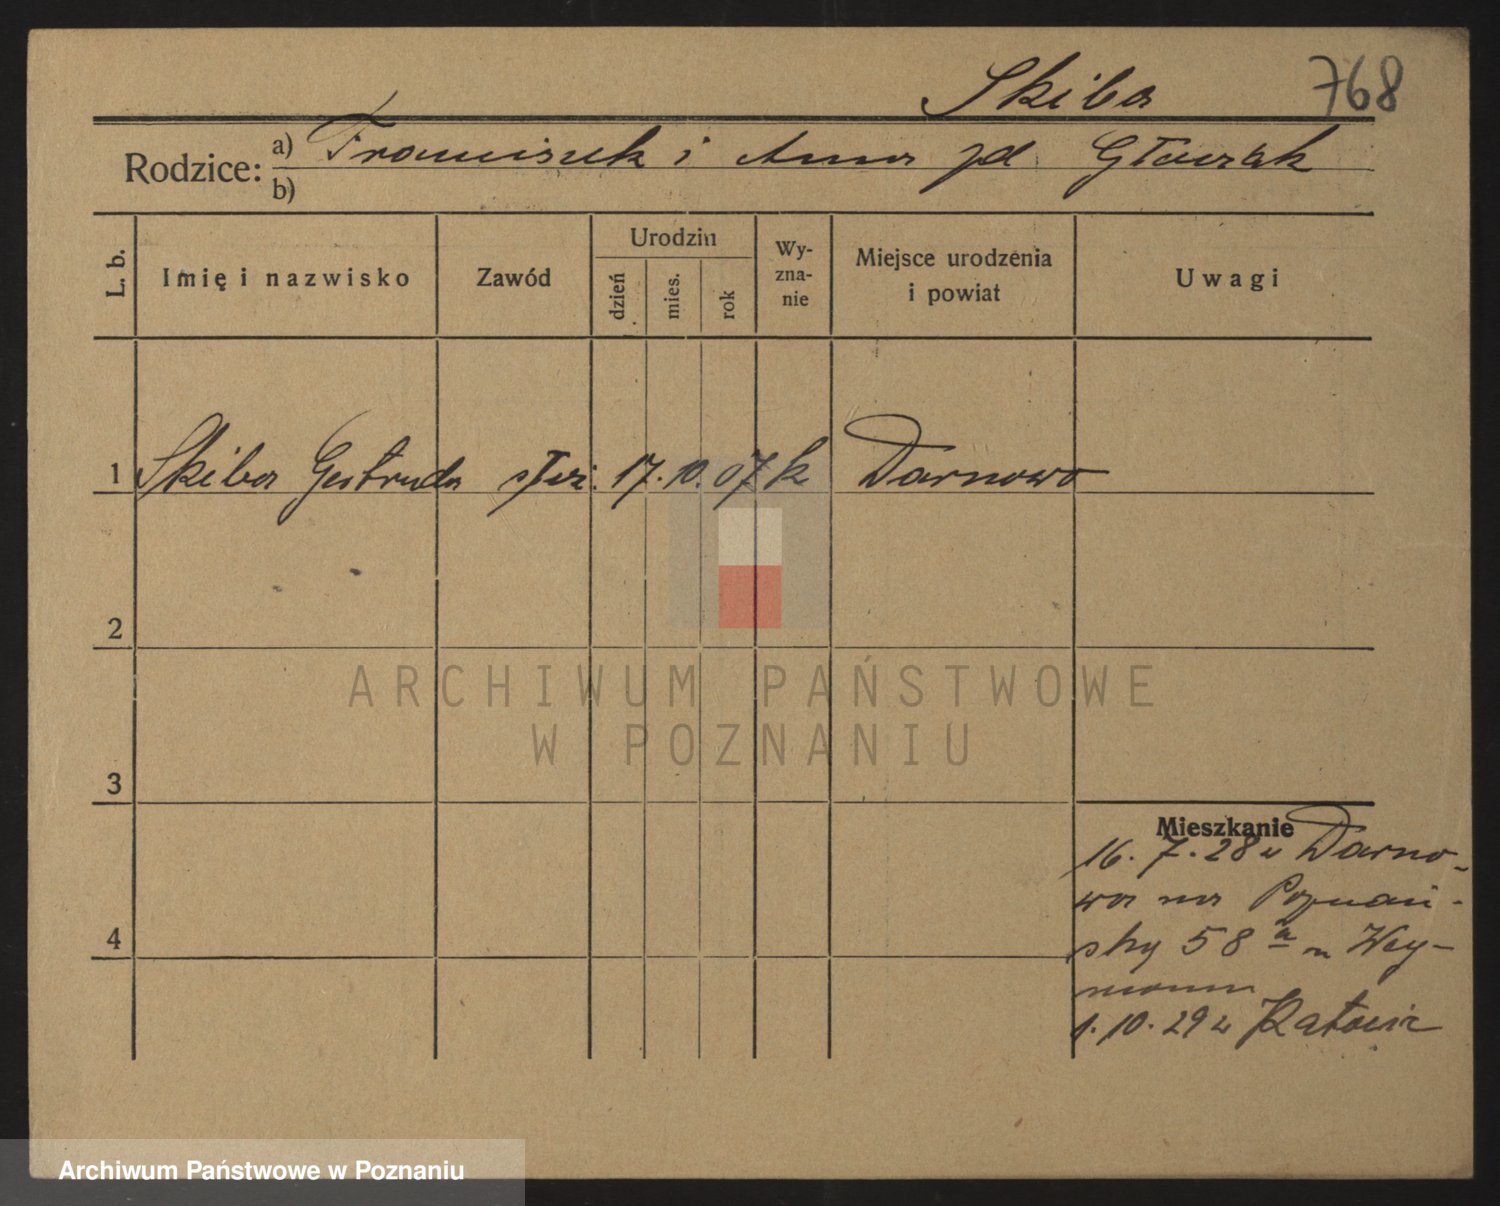 Skiba 768
Rodzice: a) Franciszek i Anna zd Głowzak
b)
L. b.
Imię i nazwisko
Zawód
Urodzin
dzień
mies.
rok
Wy-
zna-
nie
Miejsce urodzenia
i powiat
Uwagi
1 Skiba Gertruda służ. 17. 10. 07 k Darnowo
2
3
4
Mieszkanie
16. 7. 28 z Darno-
wa na Poznań-
ską 58a u Wey-
mann
1. 10. 29 z
ARCHIWUM PAŃSTWOWE
W POZNANIU
Archiwum Państwowe w Poznaniu